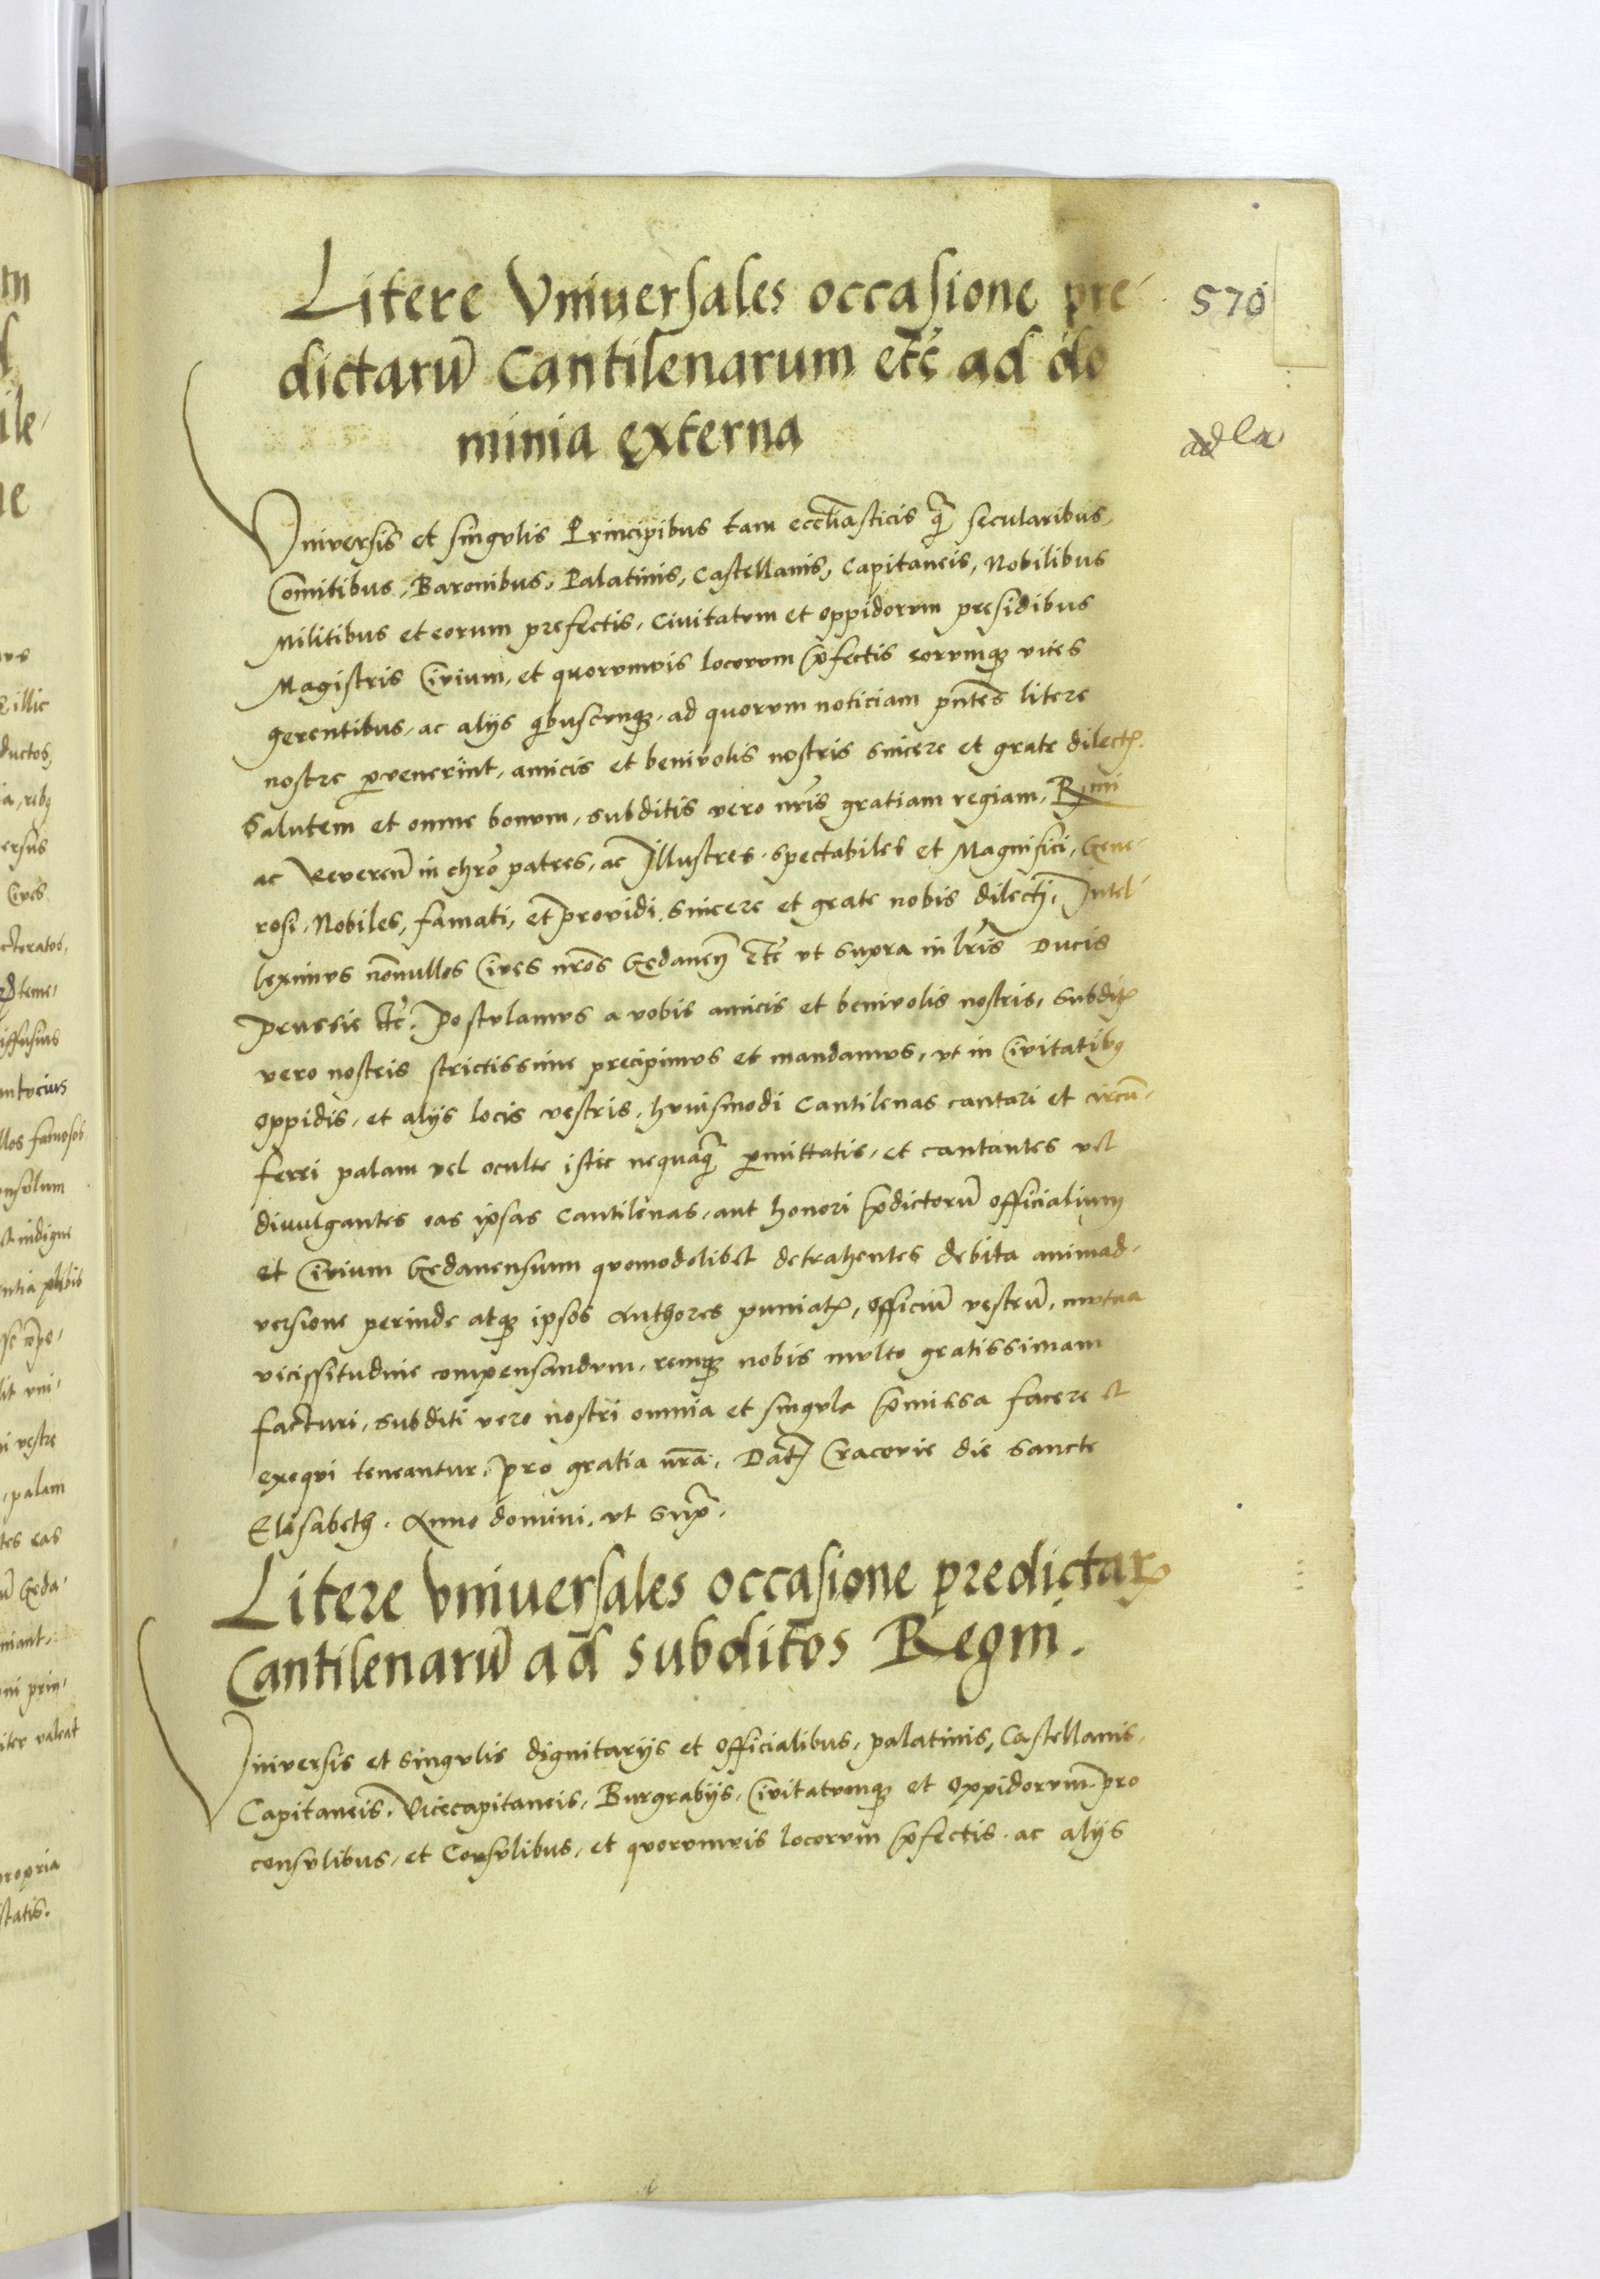 Litere Vniuersales occasione pre-
dictarū Cantilenarum etc̄ ad do
minia externa
570
ad la
Vniversis et singvlis Principibus tam eccl̄iasticis q̄ secularibus,
Comitibus, Baronibus, Palatinis, Castellanis, Capitaneis, Nobilibus
Militibus et eorum prefectis, Civitatvm et oppidorvm presidibus
Magistris Civium, et quorvmvis locorvm p̄fectis eorvmq; vices
gerentibus, ac alijs qbuscvnq;, ad quorvm noticiam pn̄tes litere
nostre pervenerint, amicis et benivolis nostris sincere et grate dilectꝭ
Salutem et omne bonvm, subditis vero nr̄is gratiam regiam, Rmi
ac Reveren̄ in chrō patres, ac Illustres, spectabiles et Magnifici, Gene-
rosi, Nobiles, famati, et providi, sincere et grate nobis dilecti, Intel-
lexímvs nōnullos Cives nr̄os Gedanen̄ etc̄ vt supra in lr̄is Ducis
Prussie etc̄. Postvlamvs a vobis amicis et benivolis nostris, subditꝭ
vero nostris strictissime precipimvs et mandamvs, vt in Civitatibꝯ
oppidis, et alijs locis vestris, hvivsmodi Cantilenas cantari et circū-
ferri palam vel oculte istic nequaq̄ permittatis, et cantantes vel
divulgantes eas ipsas Cantilenas, aut honori p̄dictorū officialium
et Civium Gedanensium qvomodolibet detrahentes debita animad-
versione perinde atq; ipsos Authores puniatꝭ, officiū vestrū, mvtva
vicissitudine compensandvm, remq; nobis mvlto gratissimam
factvri, subditi vero nostri omnia et singvla p̄missa facere et
exeqvi teneantur, pro gratia nr̄a. Dat̄ Cracovie die Sancte
Elisabeth. Anno domini, vt sup̄.
Litere vniuersales occasione predictarꝝ
Cantilenarū ad subditos Regni.
Vniversis et singvlis dignitarijs et officialibus, palatinis, Castellanis,
Capitaneis, Vicecapitaneis, Burgrabijs, Civitatvmq; et oppidorvm pro
consvlibus, et Consvlibus, et qvorvmvis locorvm p̄fectis, ac alijs